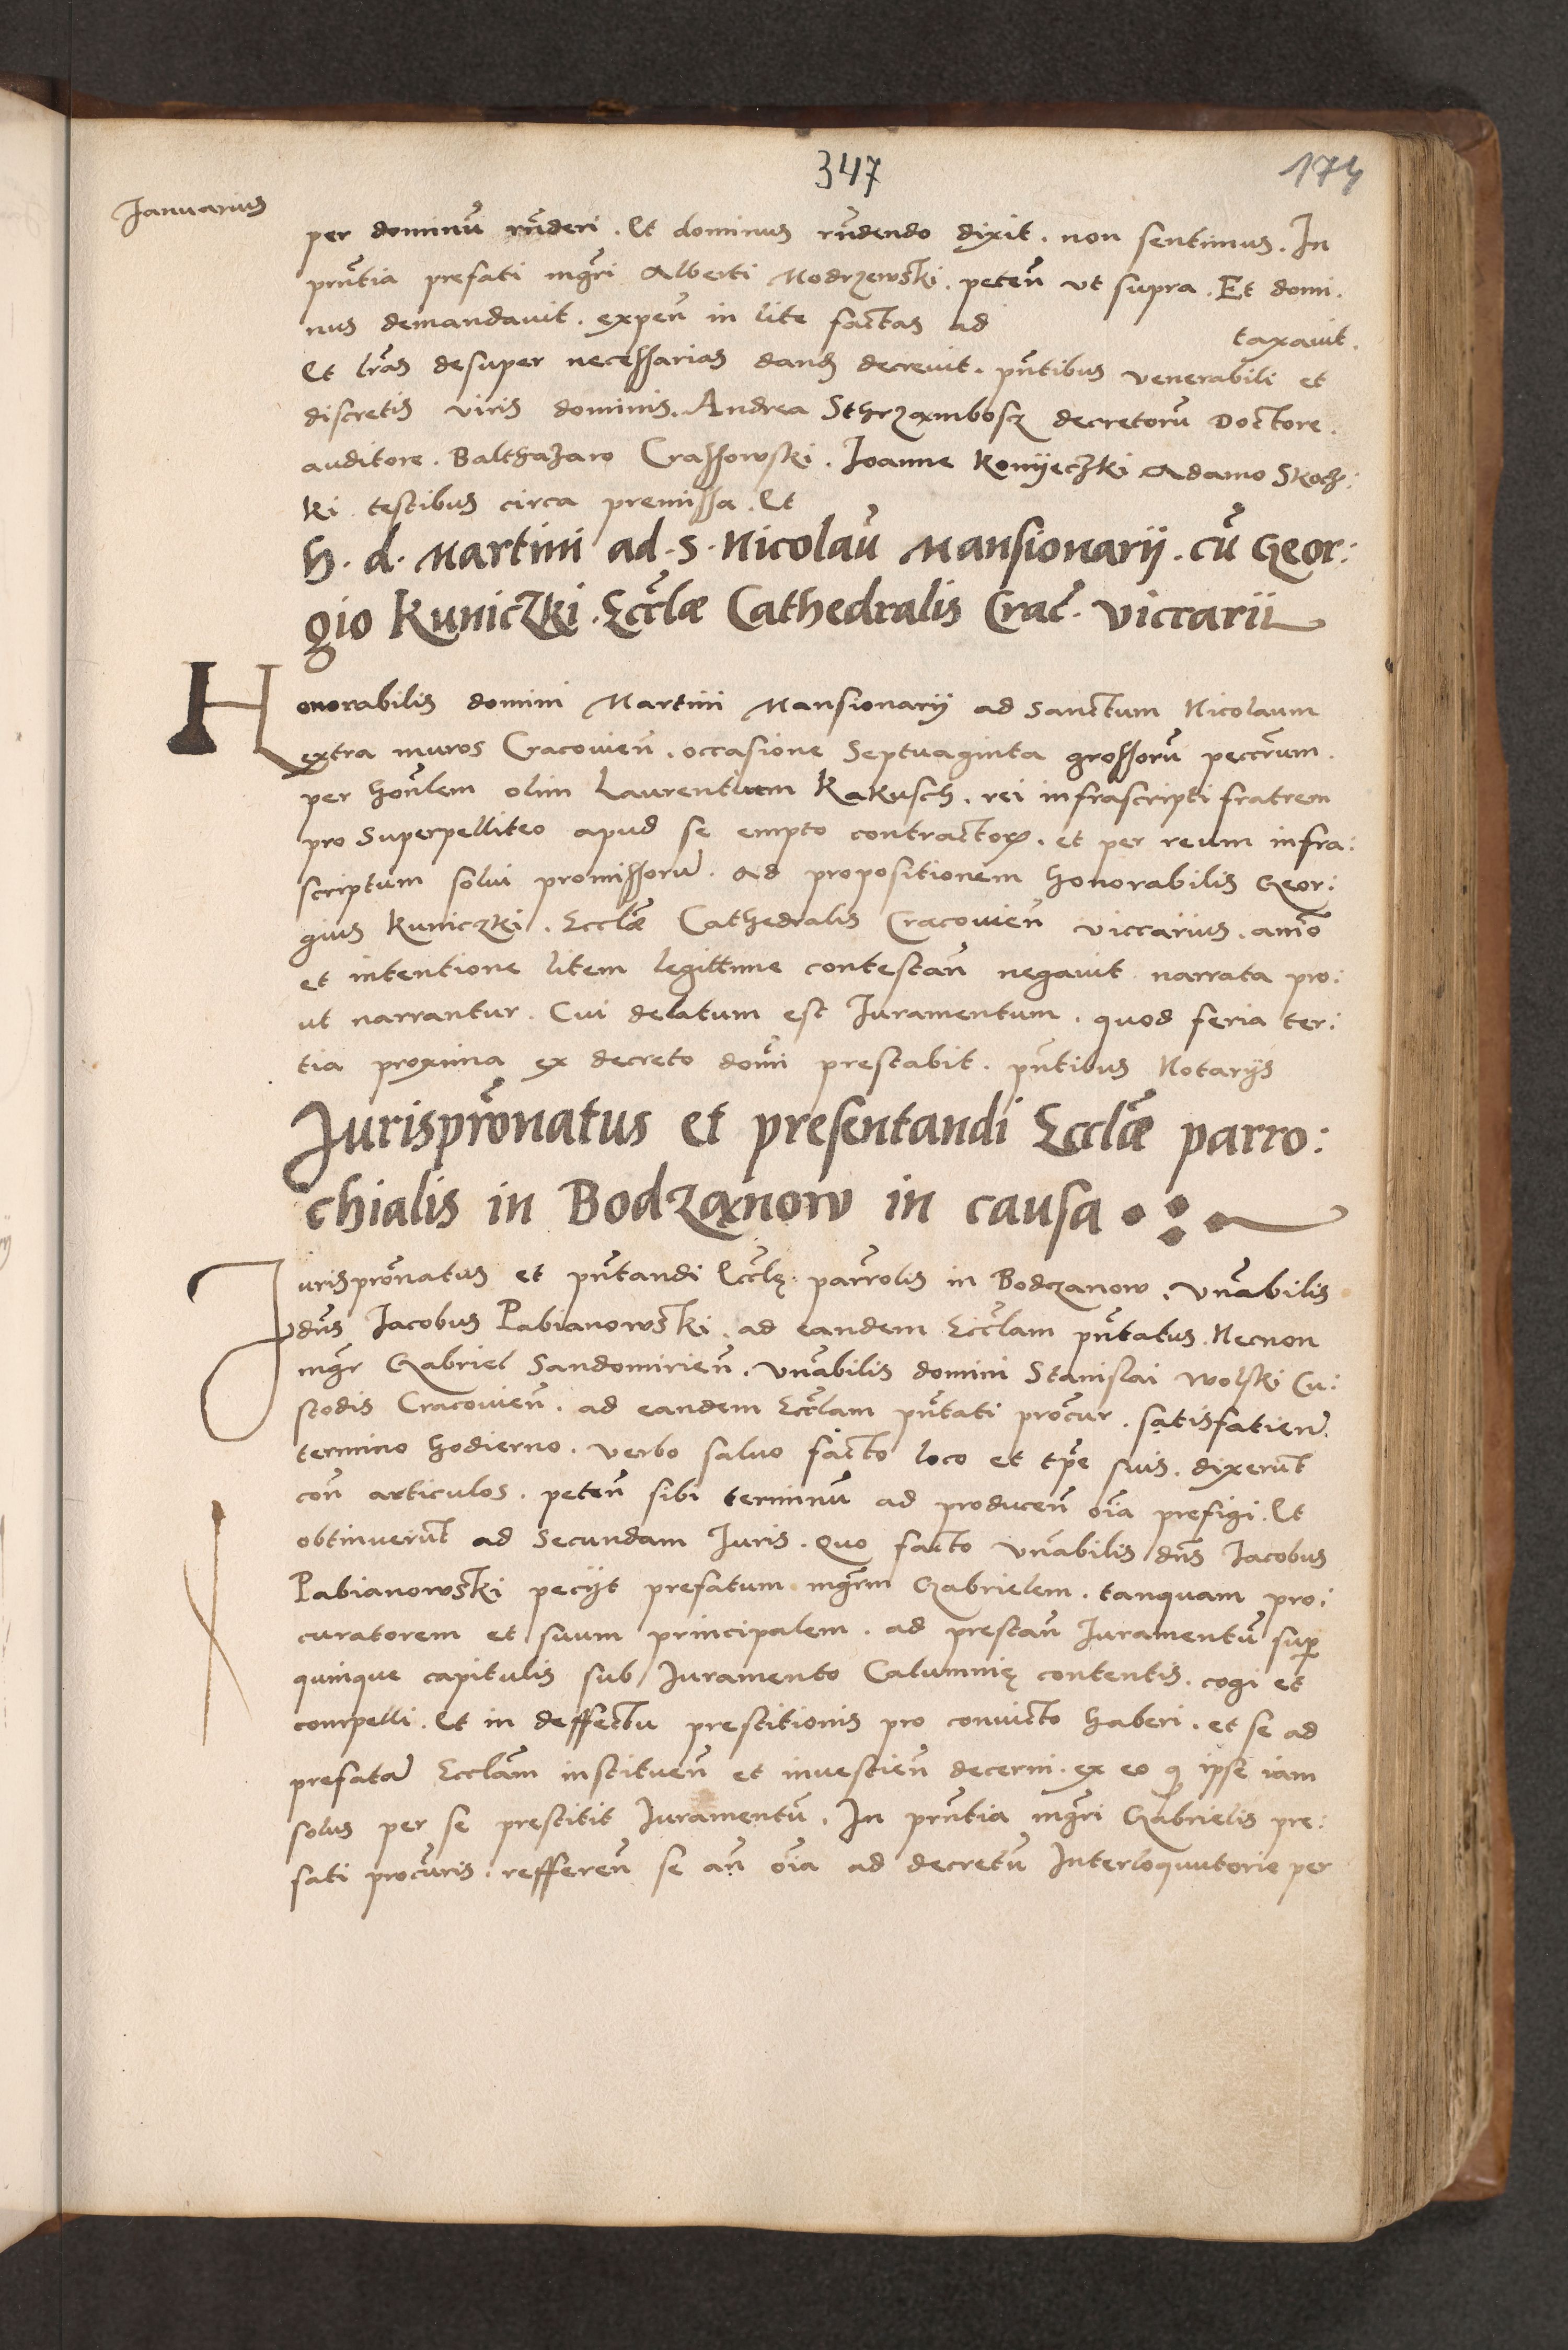 347
174
Januarius
per dominũ rñderi. Et dominus rñdendo dixit. non sentimus. In
pñtia prefati mgri Alberti Modrzewski. peteñ ut supra. Et domi.
nus demandavit. expeñ in lite factas ad taxavit.
Et lras desuper necessarias dand decrevit. pñtibus venerabili et
discretis viris dominis. Andrea Sthrzambosz decretorũ Doctore.
auditore. Balthazaro Crassowski. Joanne Konyeczki Adamo Skoth:
ki testibus circa premissa. Et
H. d. Martini ad. S. Nicolaũ Mansionarij. cũ Geor:
gio Kuniczki. Eccłæ Cathedralis Crac̃. viccarii
Honorabilis domini Martini Mansionarij ad Sanctum Nicolaum
extra muros Cracovieñ. occasione Septuaginta grossorũ peccrum.
per hoñlem olim Laurentium Kakusch. rei infrascripti fratrem
pro Superpelliteo apud se empto contractoꝝ. et per reum infra:
scriptum solui promissorũ. Ad propositionem honorabilis Geor:
gius Kuniczki. Eccłæ Cathedralis Cracovieñ viccarius. añio
et intentione litem legittime contestañ negavit narrata pro:
ut narrantur. Cui delatum est Juramentum. quod feria ter:
tia proxima ex decreto domi prestabit. pñtibus Notarijs
Jurisprõnatus et presentandi Eccłæ parro:
chialis in Bodzanow in causa
Jurisprõnatus et pñtandi Eccłę parrolis in Bodzanow. vñabilis
dñs Jacobus Pabianowski. ad eandem Ecclam pñtatus. Necnon
mgr Gabriel Sandomirieñ. vñabilis domini Stanislai Wolski Cu:
stodis Cracovieñ. ad eandem Ecclam pñtati procur. satisfatieñ.
termino hodierno. verbo salvo facto loco et tpre suis. dixerũt
coñ articulos. peteñ sibi terminũ ad produceñ oĩa prefigi. Et
obtinuerũt ad Secundam Juris. Quo facto vñabilis dñs Jacobus
Pabianowski pecijt prefatum mgrm Gabrielem. tanquam pro:
curatorem et suum principalem. ad prestañ Juramentũ sup
quinque capitulis sub Juramento Calumnię contentis. cogi et
compelli. Et in deffectu prestitionis pro convicto haberi. et se ad
prefatã Ecclam institueñ et investieñ decerni. ex eo q ipse iam
solus per se prestitit Juramentũ. In pñtia mgri Gabrielis pre:
fati procuris. refferreñ se añ oĩa ad decretũ Interloquutorie per